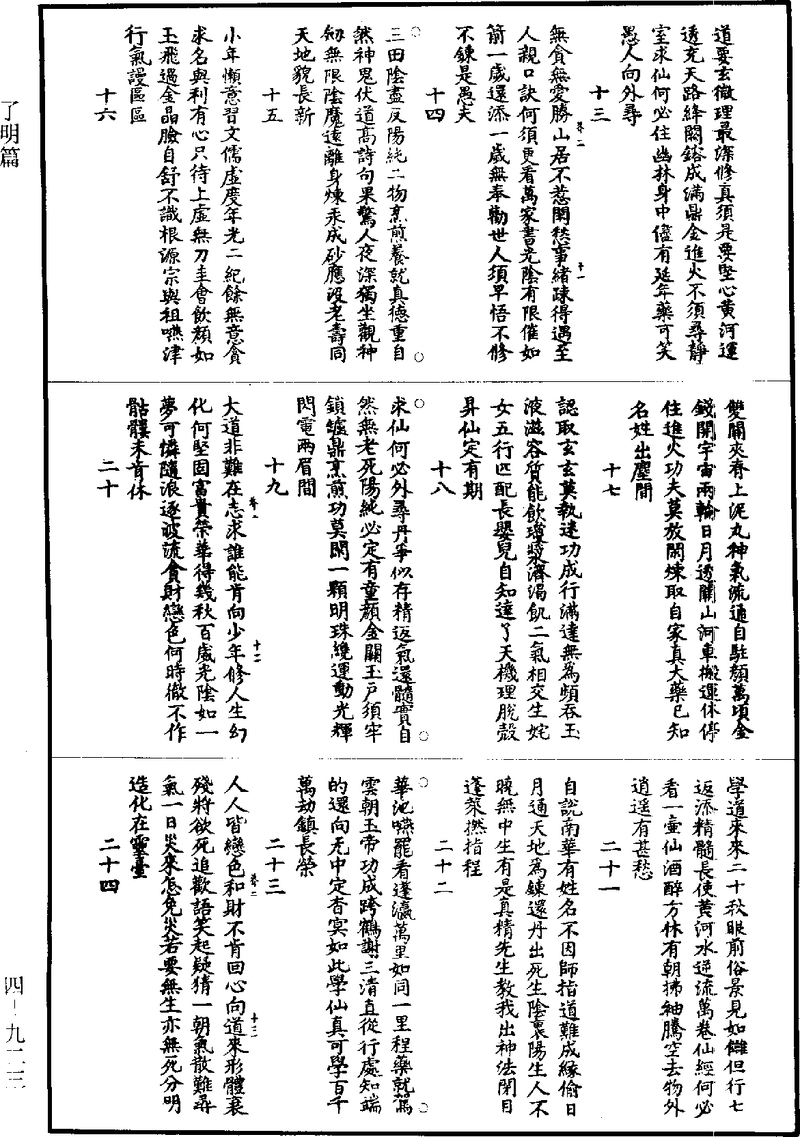 道要玄微理最深修真須是要堅心黃河運
透充天路絳闕鎔成滿鼎金進火不須尋靜
室求仙何必住幽林身中儘有延年藥可笑
愚人向外尋
十三
無貪無愛勝山居不惹閑愁事緒疎得遇至
人親口訣何須更看萬家書光陰有限催如
箭一歲還添一歲無奉勸世人須早悟不修
不鍊是愚夫
十四
三田陰盡反陽純二物烹煎養就真德重自
然神鬼伏道高詩句果驚人夜深獨坐觀神
劒無限陰魔遠離身煉汞成砂應沒老壽同
天地貌長新
十五
小年懶意習文儒虛度年光二紀餘無意貪
求名與利有心只待上虛無刀圭會飲顏如
玉飛過金晶臉自舒不識根源宗與祖嚥津
行氣謾區區
十六
雙關夾脊上泥丸神氣流通自駐顏萬頃金
錢開宇宙兩輪日月透關山河車搬運休停
住進火功夫莫放閑煉取自家真大藥已知
名姓出塵間
十七
認取玄玄莫執迷功成行滿達無為頻吞玉
液滋容質能飲瓊漿濟渴飢二氣相交生姹
女五行匹配長嬰兒自知達了天機理脫殼
昇仙定有期
十八
求仙何必外尋丹寧似存精返氣還髓實自
然無老死陽純必定有童顏金關玉戶須牢
鎖爐鼎烹煎功莫閑一顆明珠纔運動光輝
閃電兩眉間
十九
大道非難在志求誰能肯向少年修人生幻
化何堅固富貴榮華得幾秋百歲光陰如一
夢可憐隨浪逐波流貪財戀色何時徹不作
骷髏未肯休
二十
學道來來二十秋眼前俗景見如讎但行七
返添精髓長使黃河水逆流萬卷仙經何必
看一壺仙酒醉方休有朝拂袖騰空去物外
逍遥有甚愁
二十一
自說南華有姓名不因師指道難成緣偷日
月通天地為鍊還丹出死生陰裏陽生人不
曉無中生有是真精先生教我出神法閉目
蓬萊撚指程
二十二
華池嚥罷看蓬瀛萬里如同一里程藥就駕
雲朝玉帝功成跨鶴謝三清直從行處知端
的還向无中定杳冥如此學仙真可學百千
萬劫鎮長榮
二十三
人人皆戀色和財不肯回心向道來形體衰
殘將欲死追歡語笑起疑猜一朝氣散難尋
氣一日災來怎免災若要無生亦無死分明
造化在靈臺
二十四
了明篇
四-九二三